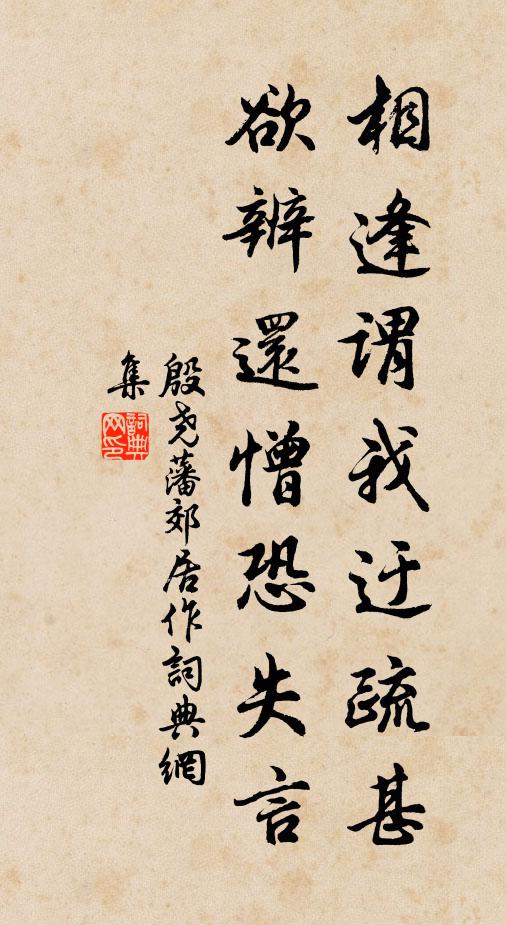 相逢谓我迂疏甚
欲辨还憎恐失言
殷尧藩郊居作詞典網
集
詞典网印